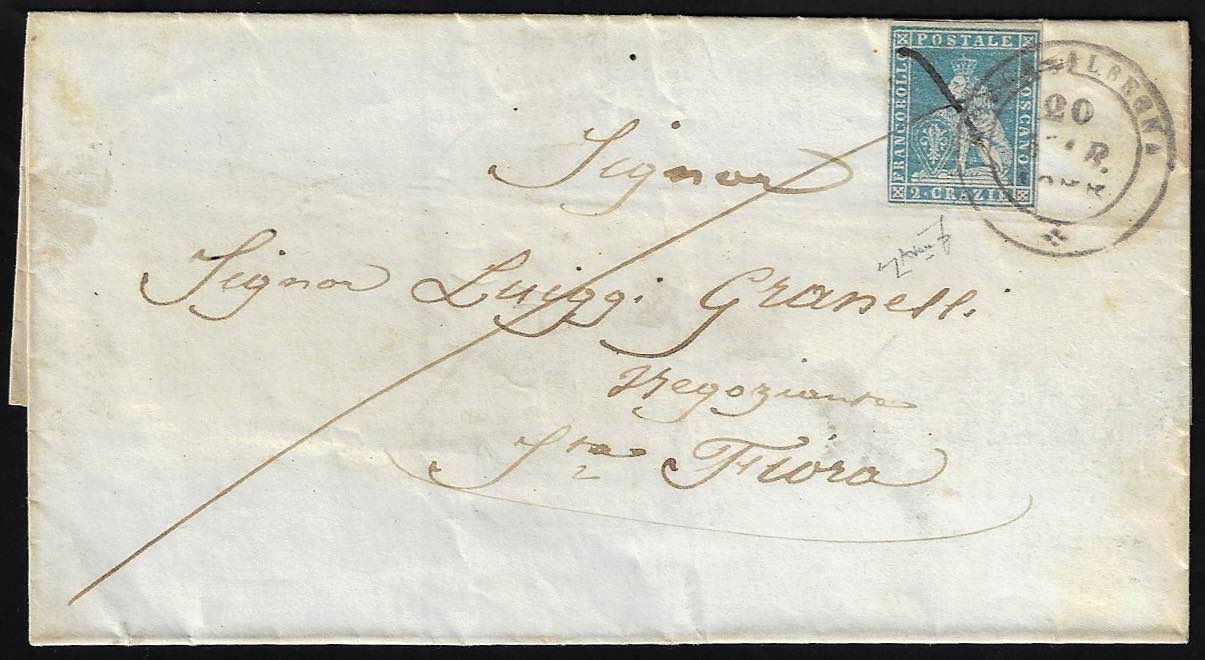 POSTALE
FRANCOBOLLO
TOSCANO
2 · CRAZIE
20
Signor
Signor Luiggi Granelli
Negoziante
Sta Fiora